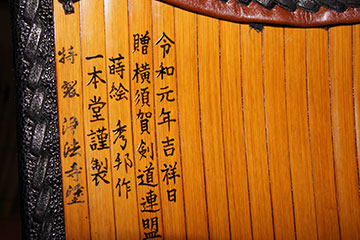 令和元年吉祥日
贈横須賀剣道連盟
蒔絵 秀邦作
一本堂謹製
特製 浄法寺塗